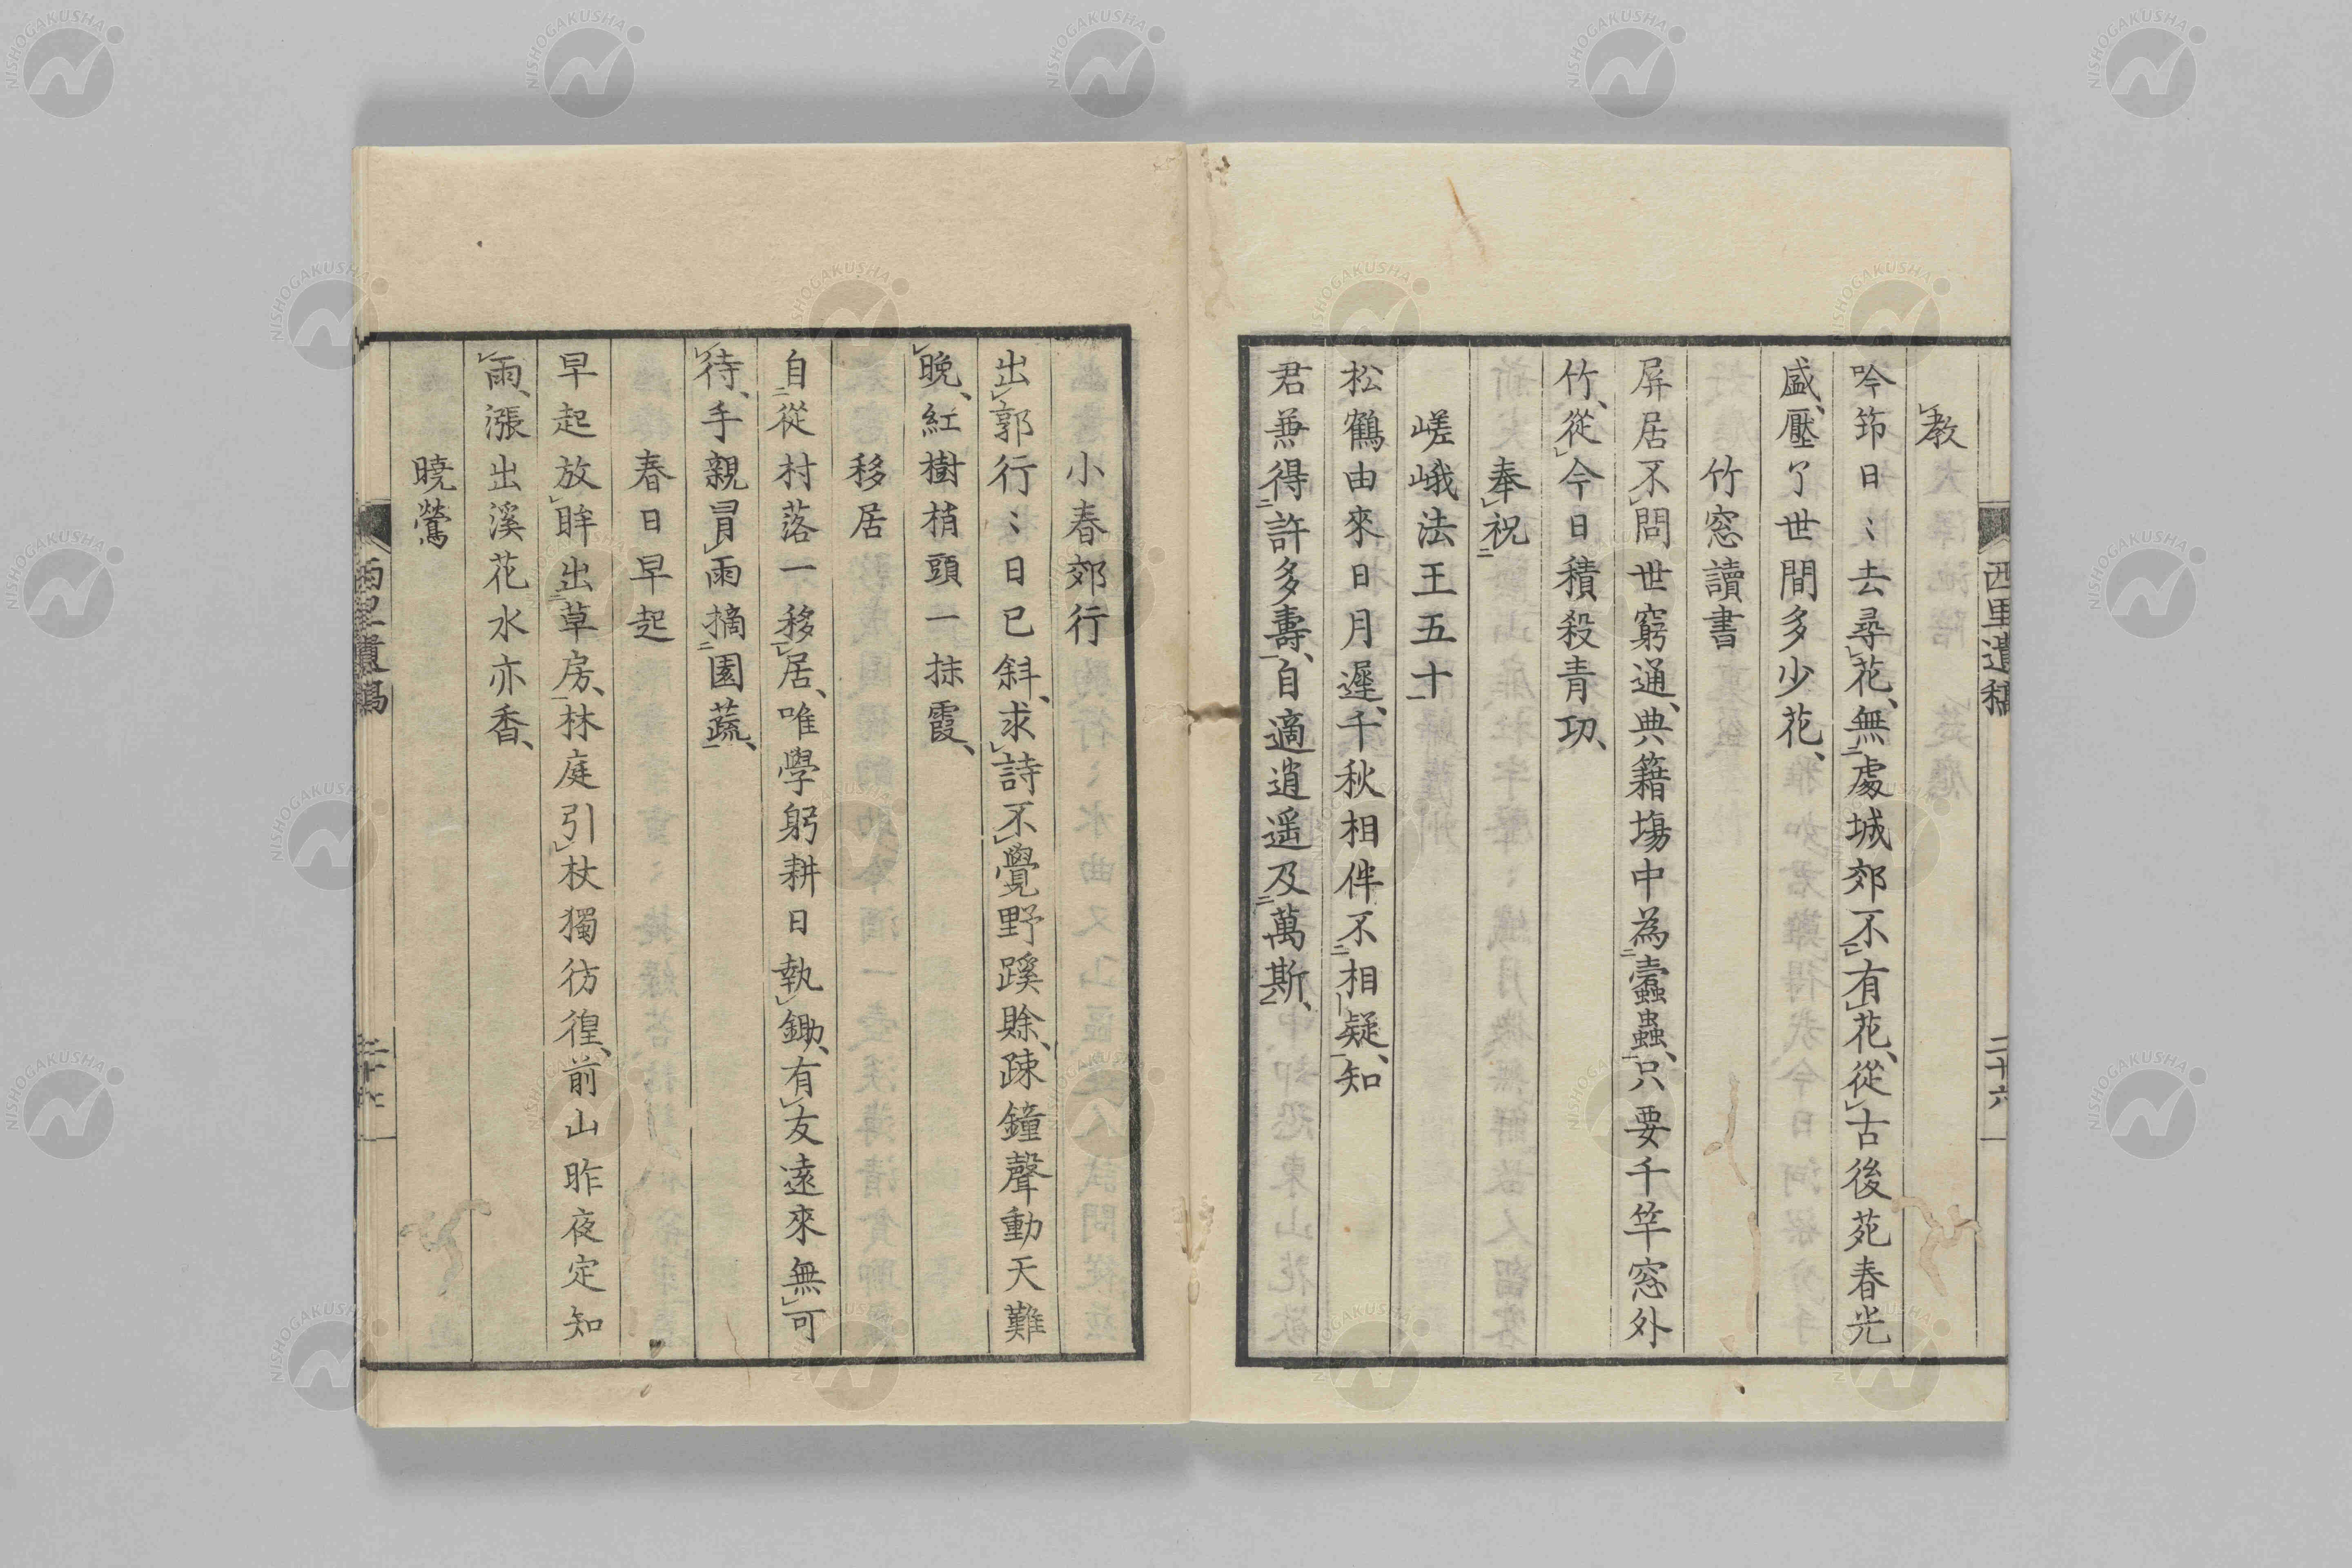 西里遺稿 二十六
教
吟筇日〻去尋花、無處城郊不有花、從古後苑春光
盛、壓了世間多少花、
竹窓讀書
屏居不問世窮通、典籍塲中為蠹蟲、只要千竿窓外
竹、從今日積殺青功、
奉祝
嵯峨法王五十
松鶴由來日月遲、千秋相伴不相疑、知
君兼得許多壽、自適逍遥及萬斯、
小春郊行
出郭行〻日已斜、求詩不覺野蹊賖、踈鐘聲動天難
晩、紅樹梢頭一抹霞、
移居
自從村落一移居、唯學躬耕日執鋤、有友遠來無可
待、手親冒雨摘園蔬、
春日早起
早起放眸出草房、林庭引杖獨彷徨、前山昨夜定知
雨、漲出溪花水亦香、
曉鶯
西里遺稿
NISHOGAKUSHA